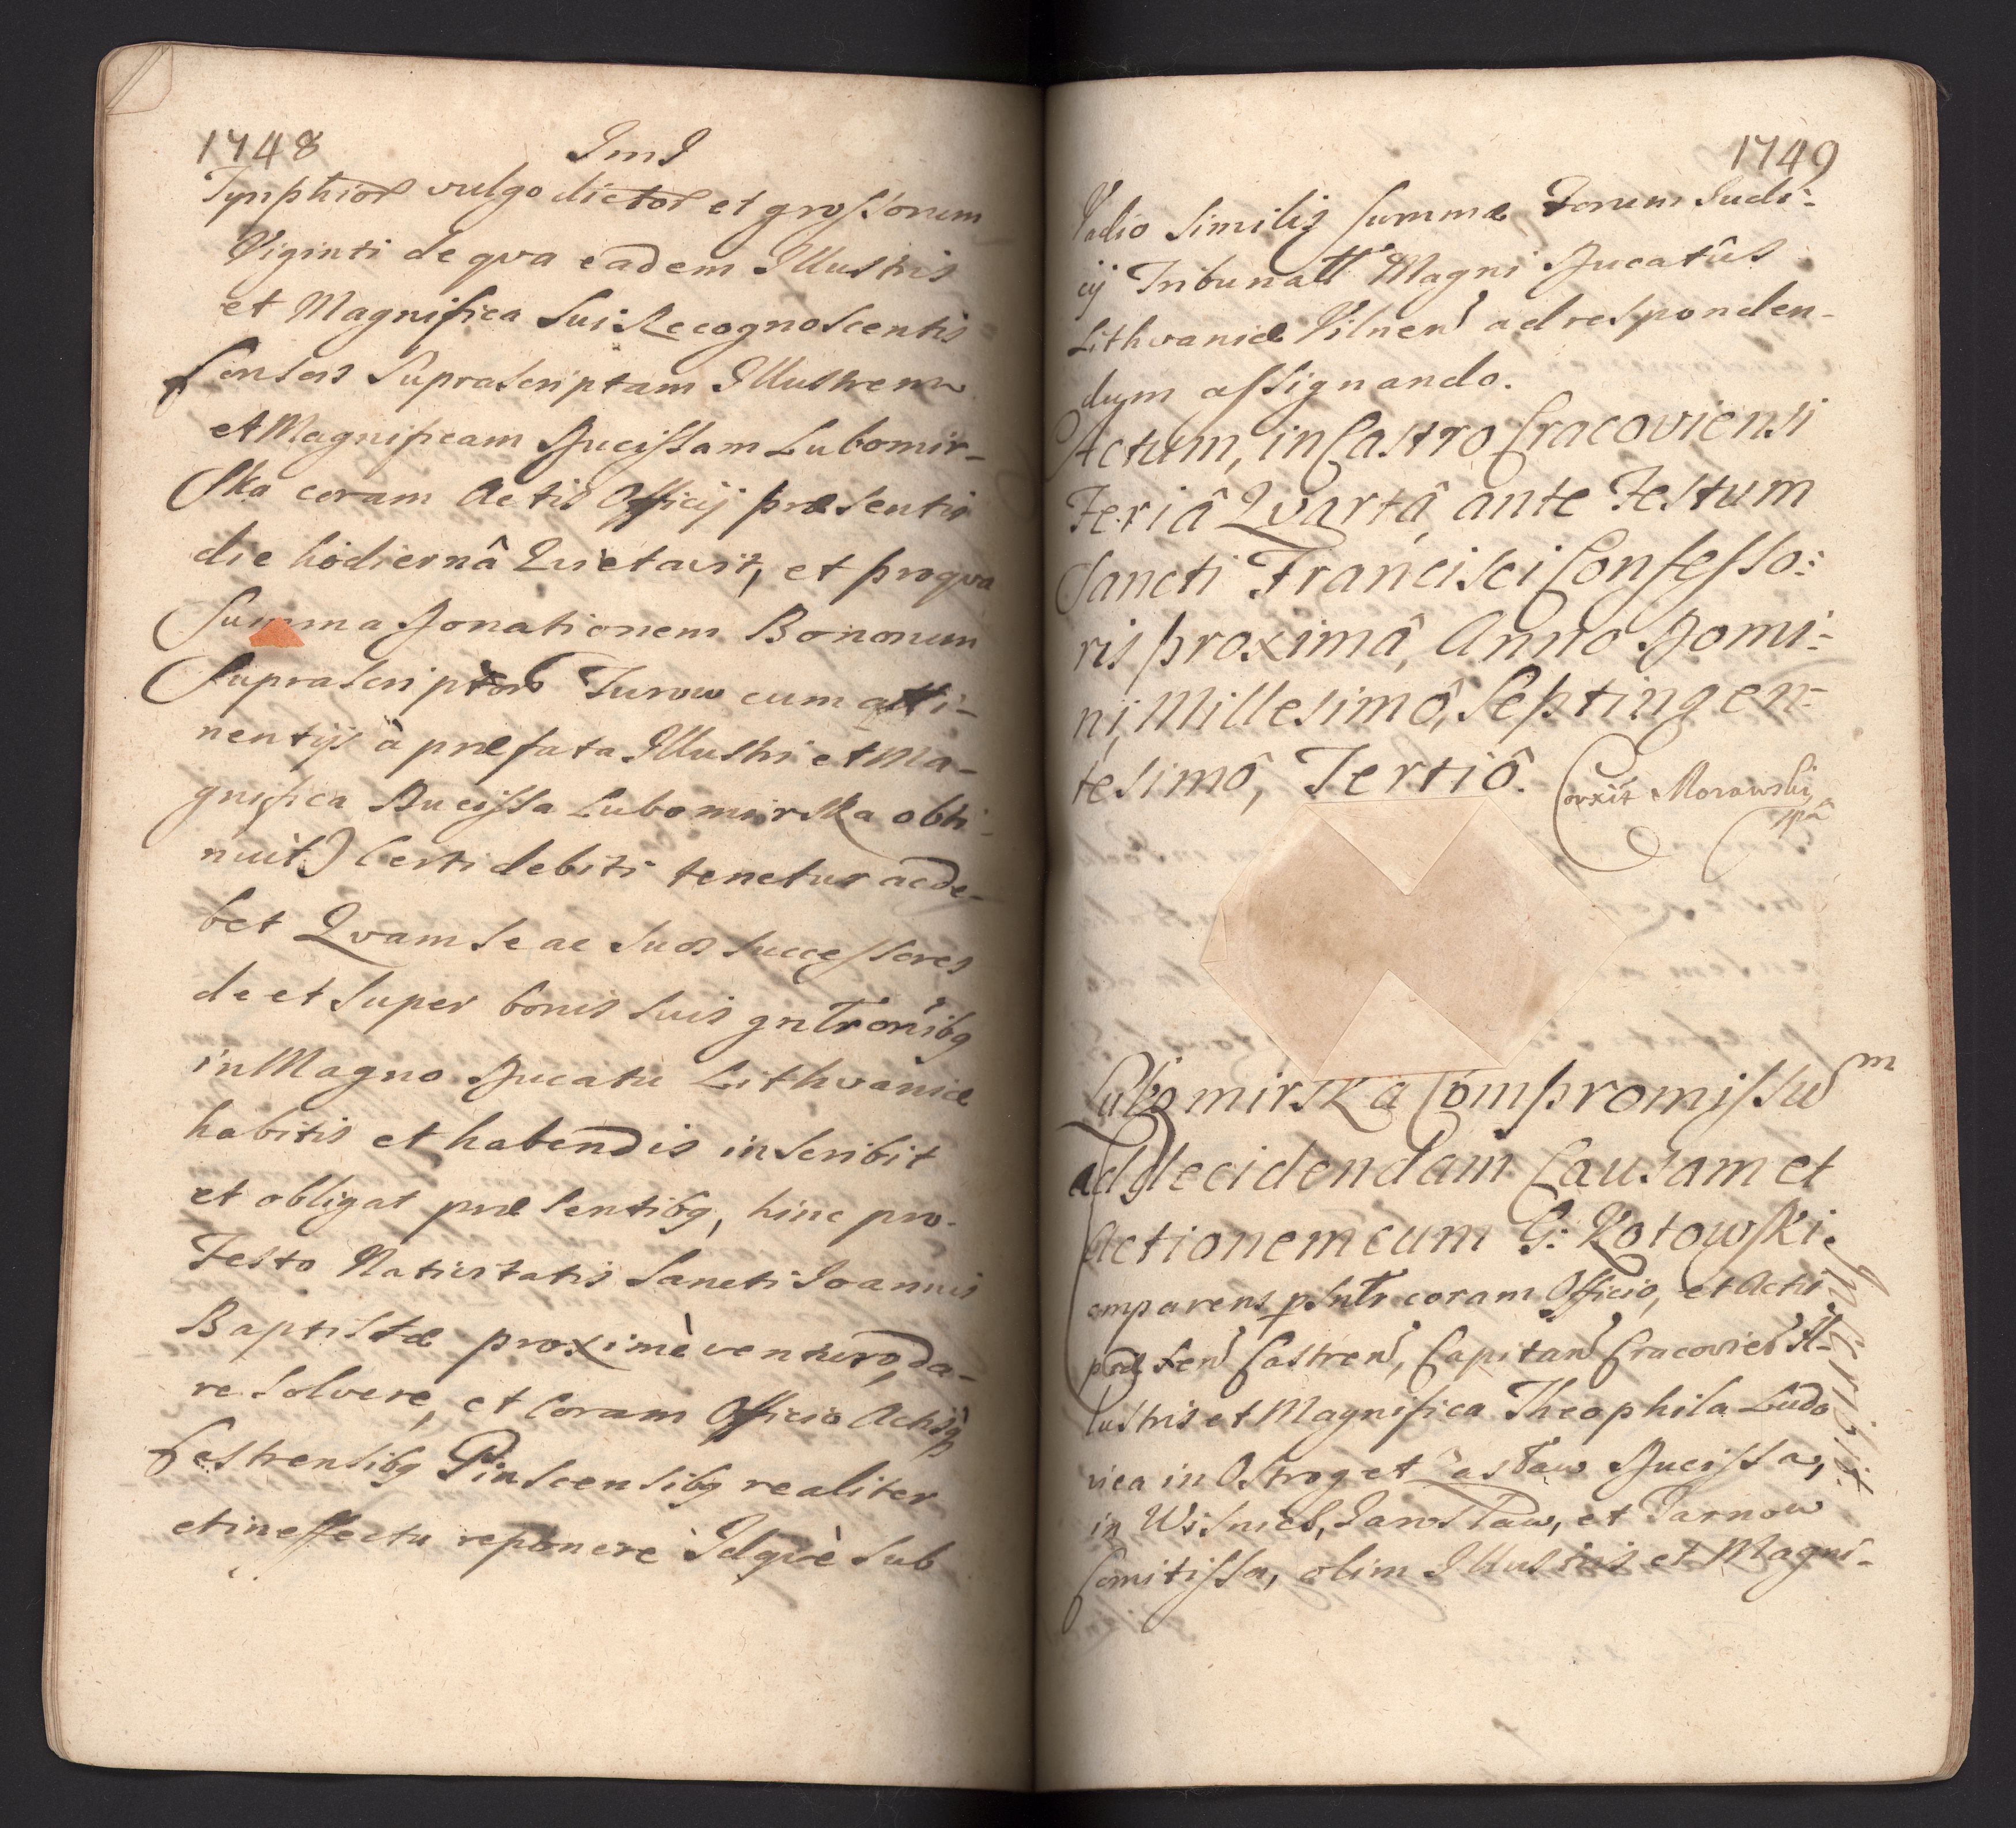 1748
ImI
Tynphior vulgo dictor et grossorum
Viginti de qva eadem Illustris
et Magnifica Sui Recognoscentis
Consors Suprascriptam Illustrem
et Magnificam Ducissam Lubomir-
ska coram Actis Officij præsentis
die hodiernâ Qvietavit, et pro qva
Summa Donationem Bonorum
Suprascriptor Turow cum atti-
nentijs à præfata Illustri et Ma-
gnifica Ducissa Lubomirska obti-
nuit) Certi debiti tenetur ac de-
bet Qvam se ac suos successores
de et super bonis suis gnlr onibq
in Magno Ducatu Lithvaniæ
habitis et habendis inscribit
et obligat præsentibq, hinc pro
Festo Nativitatis Sancti Joannis
Baptistæ proximè venturo, da-
re solvere, et Coram Officio Actisq
Castrensibq Pinscensibq realiter
et in effectu reponere Idqvè sub
1749
Vadio Similis Summæ Forum Judi-
cij Tribunall Magni Ducatûs
Lithvaniæ Vilnen ad responden-
dum assignando.
Actum, in Castro Cracoviensi
Feriâ Qvartâ ante Festum
Sancti Francisci Confesso:
ris proximâ, Anno Domi-
ni, Millesimô, Septingen-
tesimô, Tertiô.
Corxit Morawski
mpa
Lubomirska Compromissum
ad decidendam Causam et
Actionem cum G: Kotowski.
Inscribit.
Comparens psnlr coram Officio, et Actis
præsen Castren, Capitan Cracovien Il-
lustris et Magnifica Theophila Ludo
vica in Ostrog et Zasław Ducissa,
in Wisnicz, Jarosław, et Tarnow
Comitissa, olim Illustris et Magni-